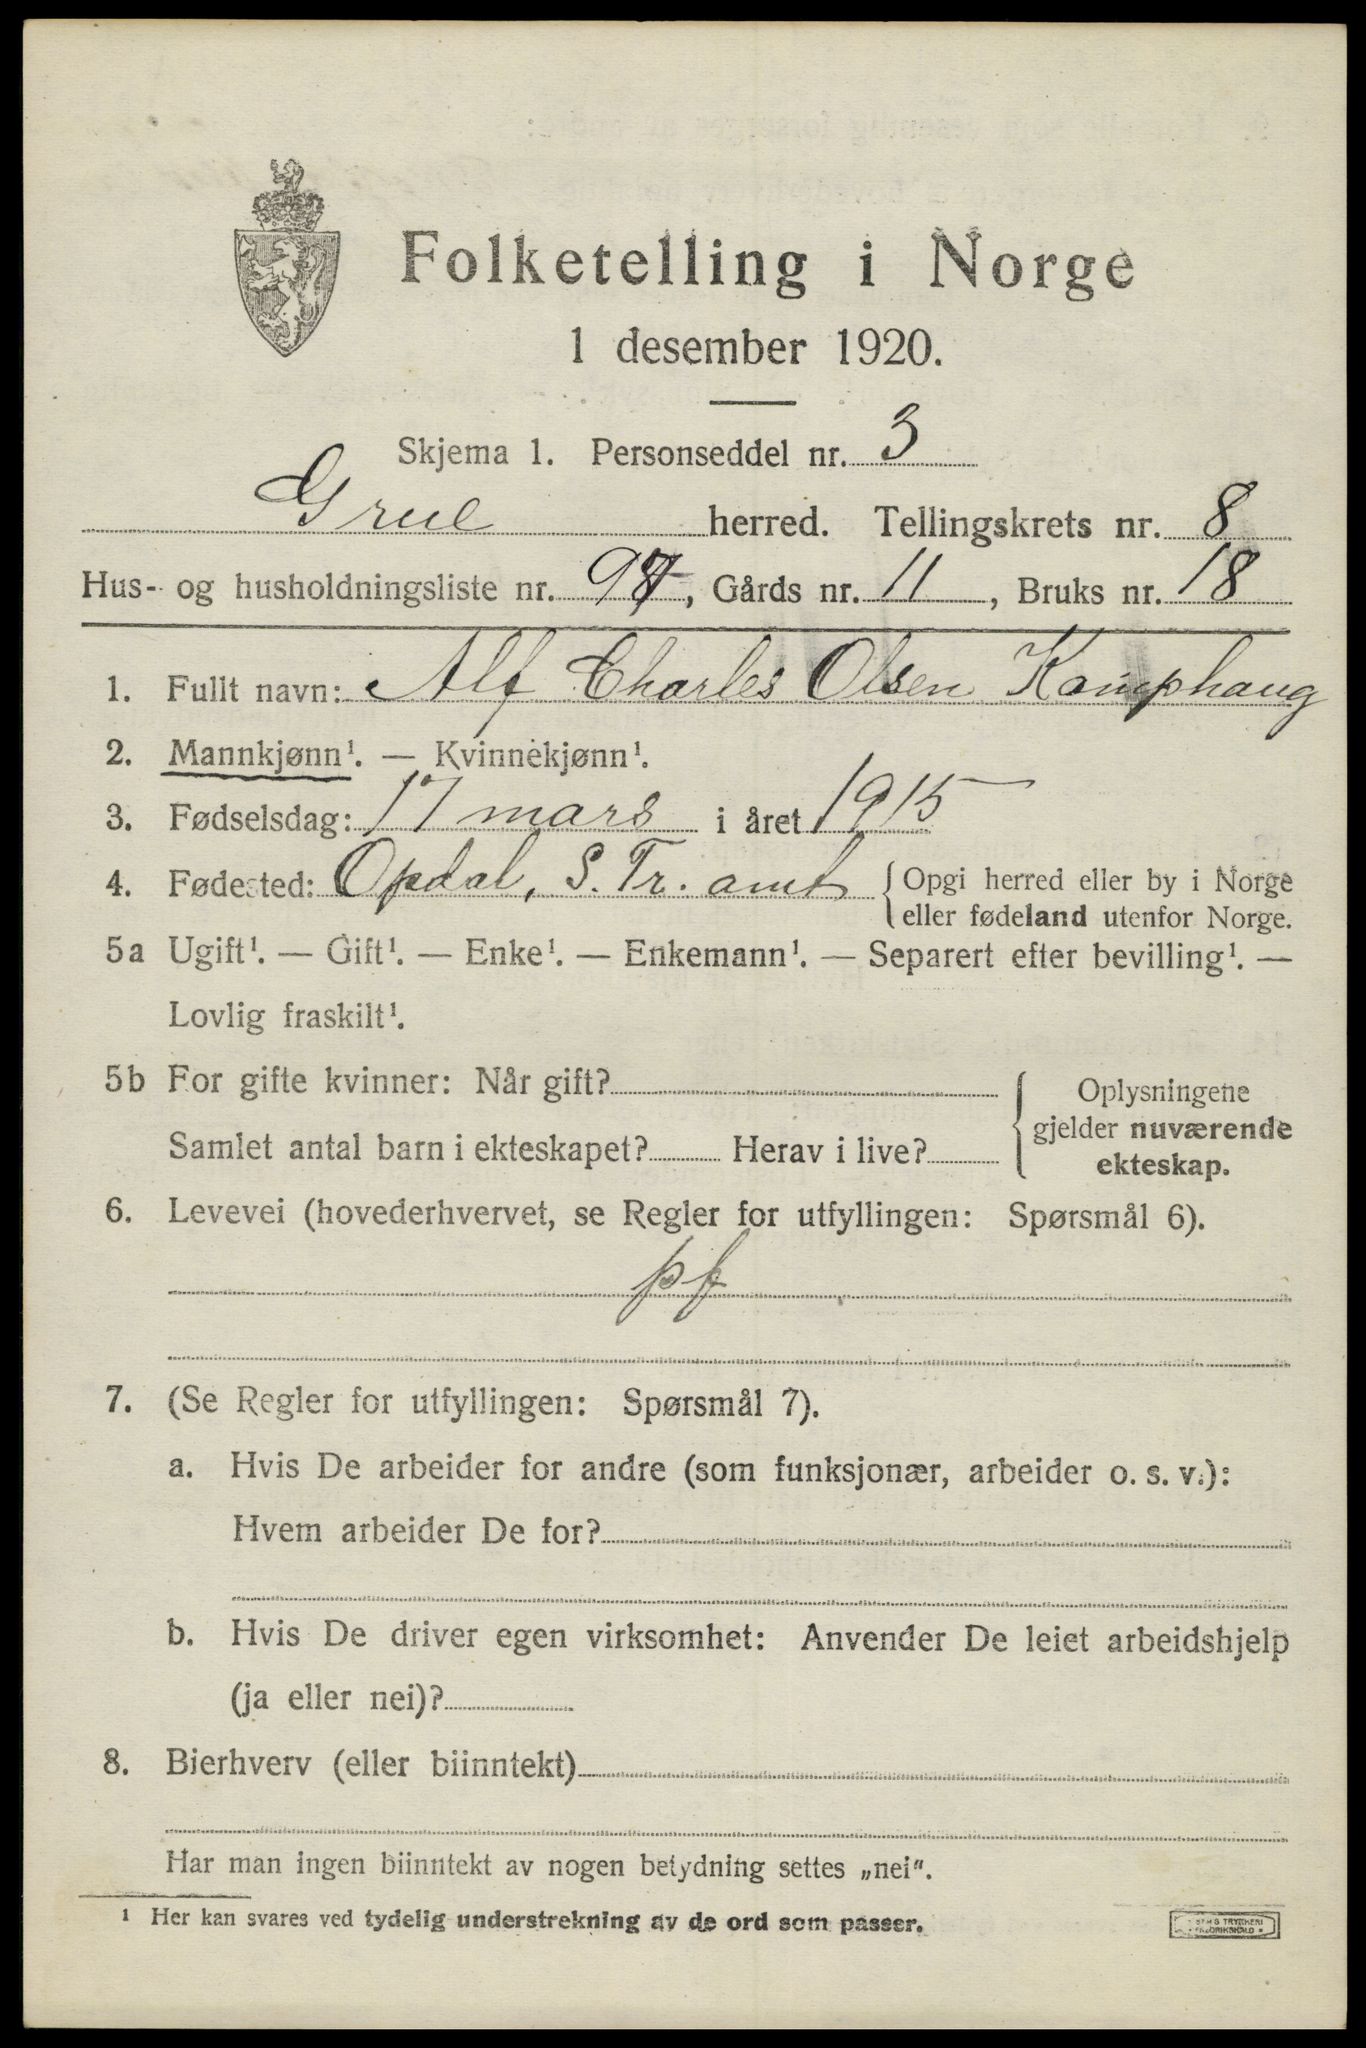 Folketelling i Norge
1 desember 1920.
Skjema 1. Personseddel nr. 3
Grue herred. Tellingskrets nr. 8
Hus- og husholdningsliste nr. 98, Gårds nr. 11, Bruks nr. 18
1. Fullt navn: Alf Charles Olsen Kamphaug
2. Mannkjønn¹. — Kvinnekjønn¹.
3. Fødselsdag: 17 mars i året 1915
4. Fødested: Opdal, S. Tr. amt { Opgi herred eller by i Norge
eller fødeland utenfor Norge.
5a Ugift¹. — Gift¹. — Enke¹. — Enkemann¹. — Separert efter bevilling¹. —
Lovlig fraskilt¹.
5b For gifte kvinner: Når gift?
Samlet antal barn i ekteskapet? Herav i live?
Oplysningene
gjelder nuværende
ekteskap.
6. Levevei (hovederhvervet, se Regler for utfyllingen: Spørsmål 6).
pf
7. (Se Regler for utfyllingen: Spørsmål 7).
a. Hvis De arbeider for andre (som funksjonær, arbeider o. s. v.):
Hvem arbeider De for?
b. Hvis De driver egen virksomhet: Anvender De leiet arbeidshjelp
(ja eller nei)?
8. Bierhverv (eller biinntekt)
Har man ingen biinntekt av nogen betydning settes „nei".
¹ Her kan svares ved tydelig understrekning av de ord som passer.
TRYKKERI